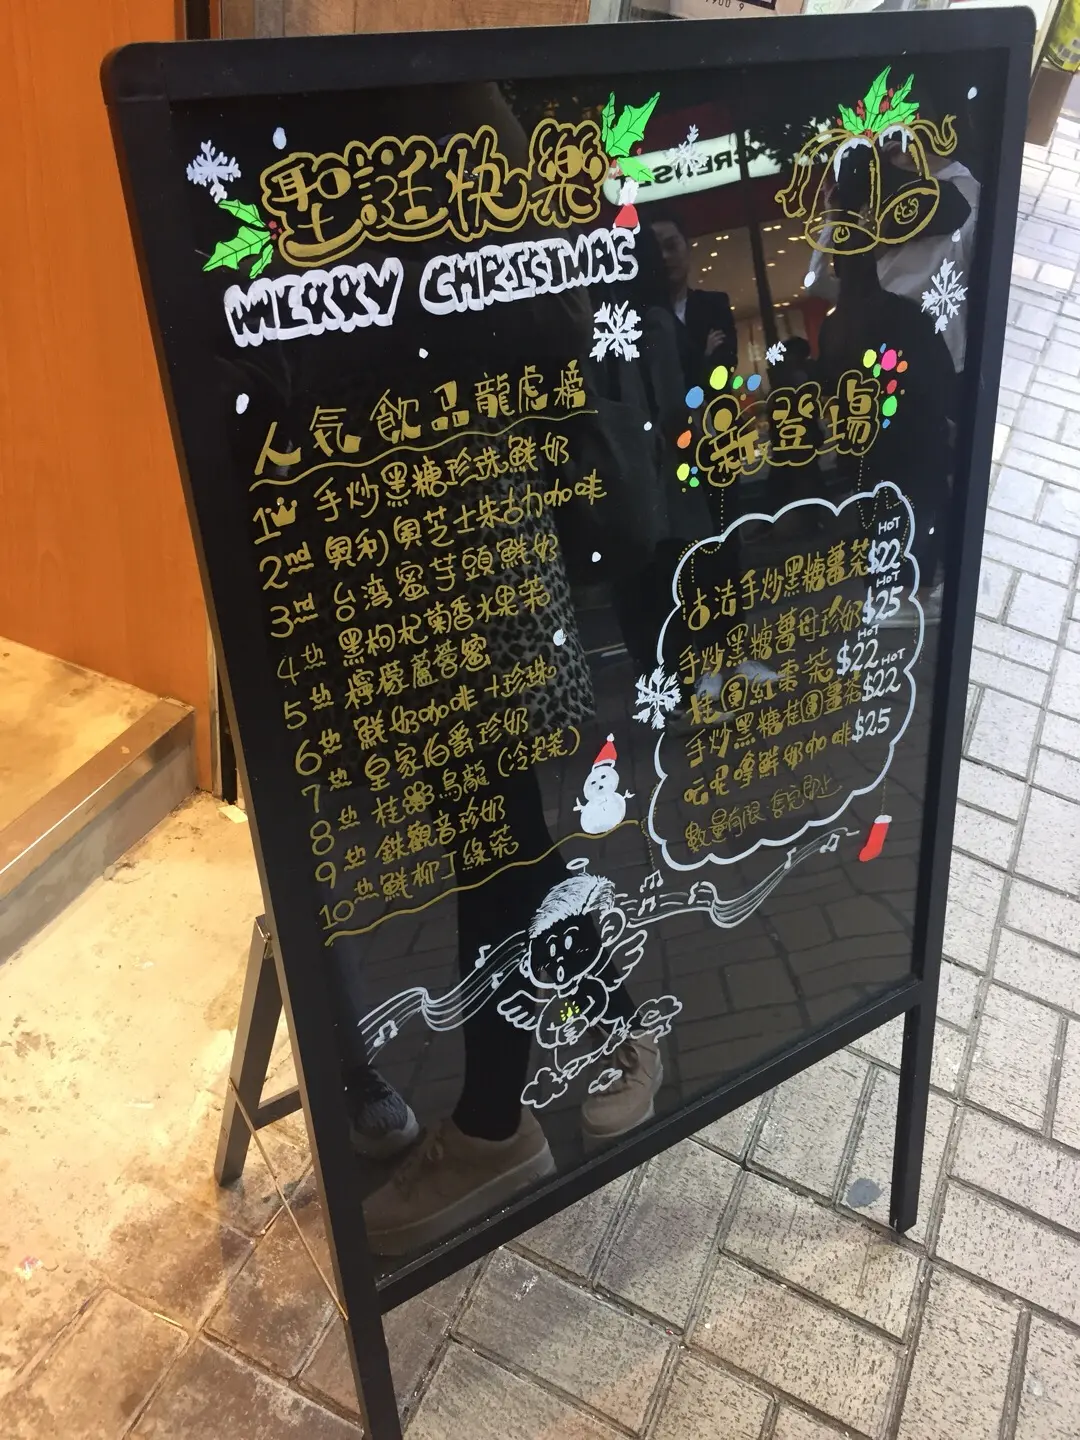 聖誕快樂
MERRY CHRISTMAS
人氣飲品龍虎榜
1 手炒黑糖珍珠鮮奶
2nd 奧利奧芝士朱古力咖啡
3rd 台湾蜜芋頭鮮奶
4th 黑枸杞菊香水果茶
5th 檸檬蘆薈蜜
6th 鮮奶咖啡+珍珠
7th 皇家伯爵珍奶
8th 桂烏龍 (冷泡茶)
9th 鉄觀音珍奶
10th 鮮柳丁綠茶
新登場
古法手炒黑糖薑茶 HOT $22
手炒黑糖薑母珍奶 HOT $25
桂圓紅棗茶 HOT $22
手炒黑糖桂圓薑茶 HOT $22
吃呢嗱鮮奶咖啡 $25
數量有限 售完即止